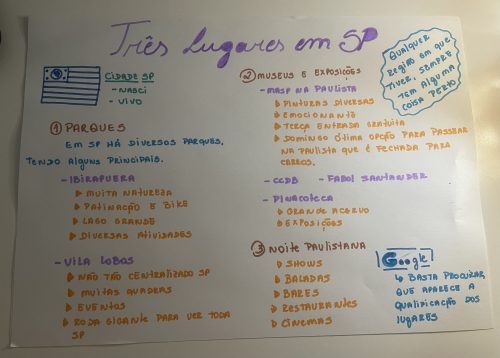 Três Lugares em SP
CIDADE SP
- NASCI
- VIVO
1 PARQUES
EM SP HÁ DIVERSOS PARQUES,
TENDO ALGUNS PRINCIPAIS.
- IBIRAPUERA
MUITA NATUREZA
PATINAÇÃO E BIKE
LAGO GRANDE
DIVERSAS ATIVIDADES
- VILA LOBOS
NÃO TÃO CENTRALIZADO SP
MUITAS QUADRAS
EVENTOS
RODA GIGANTE PARA VER TODA
SP
2 MUSEUS E EXPOSIÇÕES
- MASP NA PAULISTA
PINTURAS DIVERSAS
EMOCIONANTE
TERÇA ENTRADA GRATUITA
DOMINGO ÓTIMA OPÇÃO PARA PASSEAR
NA PAULISTA QUE É FECHADA PARA
CARROS.
- CCBB - FAROL SANTANDER
- PINACOTECA
GRANDE ACERVO
EXPOSIÇÕES
3 NOITE PAULISTANA
SHOWS
BALADAS
BARES
RESTAURANTES
CINEMAS
QUALQUER
REGIÃO EM QUE
TIVER, SEMPRE
TEM ALGUMA
COISA PERTO.
Google
BASTA PROCURAR,
QUE APARECE A
QUALIFICAÇÃO DOS
LUGARES